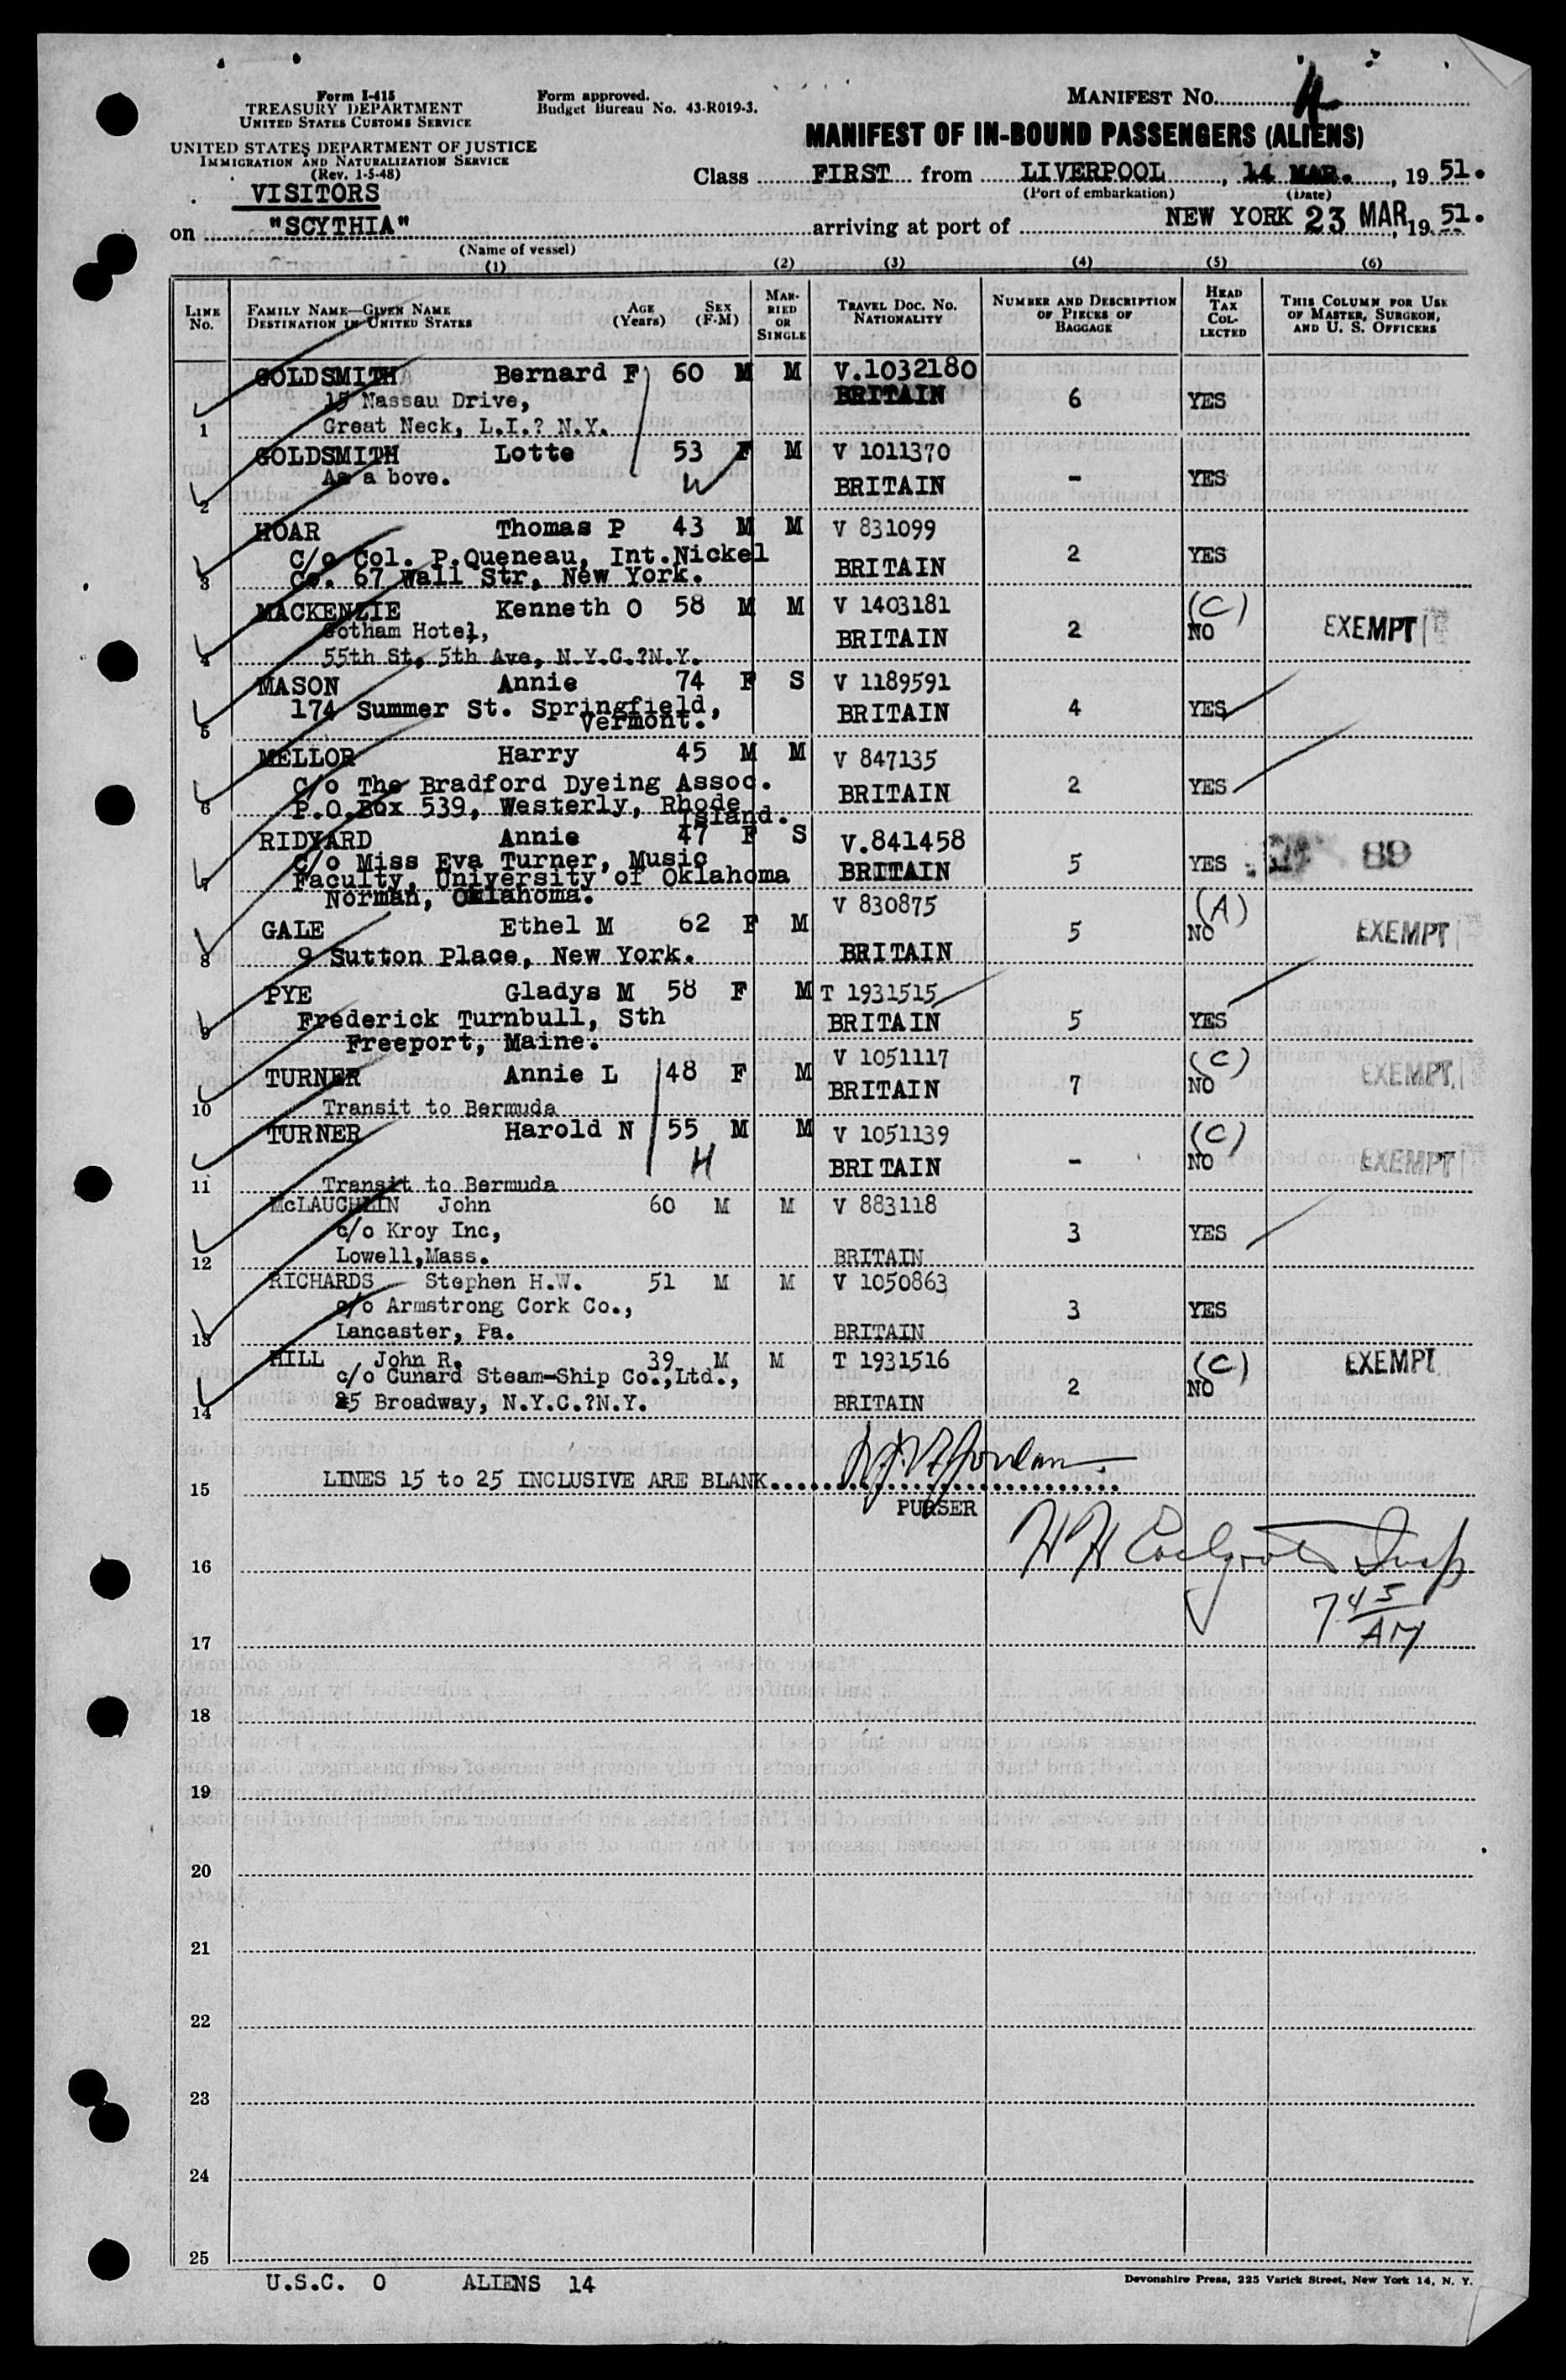 Form I-415
TREASURY DEPARTMENT
UNITED STATES CUSTOMS SERVICE
UNITED STATES DEPARTMENT OF JUSTICE
IMMIGRATION AND NATURALIZATION SERVICE
(Rev. 1-5-48)
VISITORS
Form approved.
Budget Bureau No. 43-R019-3.
MANIFEST NO. 4
MANIFEST OF IN-BOUND PASSENGERS (ALIENS)
Class FIRST from LIVERPOOL, 14 MAR., 19 51.
(Port of embarkation) (Date)
on "SCYTHIA" arriving at port of NEW YORK 23 MAR, 19 51.
(Name of vessel)
(1) (2) (3) (4) (5) (6)
LINE No. FAMILY NAME—GIVEN NAME DESTINATION IN UNITED STATES AGE (Years) SEX (F-M) MARRIED OR SINGLE TRAVEL DOC. NO. NATIONALITY NUMBER AND DESCRIPTION OF PIECES OF BAGGAGE HEAD TAX COLLECTED THIS COLUMN FOR USE OF MASTER, SURGEON, AND U. S. OFFICERS
GOLDSMITH Bernard F 60 M M V.1032180
15 Nassau Drive, BRITAIN 6 YES
1 Great Neck, L.I.? N.Y.
GOLDSMITH Lotte 53 F M V 1011370
As a bove. W BRITAIN - YES
2
HOAR Thomas P 43 M M V 831099
C/o Col. P.Queneau, Int.Nickel BRITAIN 2 YES
3 Co. 67 Wall Str, New York.
MACKENZIE Kenneth O 58 M M V 1403181 (C)
Gotham Hotel, BRITAIN 2 NO EXEMPT
4 55th St, 5th Ave, N.Y.C.?N.Y.
MASON Annie 74 F S V 1189591
174 Summer St. Springfield, BRITAIN 4 YES
5 Vermont.
MELLOR Harry 45 M M V 847135
C/o The Bradford Dyeing Assoc. BRITAIN 2 YES
6 P.O.Box 539, Westerly, Rhode
Island.
RIDYARD Annie 47 F S V.841458
C/o Miss Eva Turner, Music BRITAIN 5 YES 89
7 Faculty, University of Oklahoma
Norman, Oklahoma.
GALE Ethel M 62 F M V 830875 (A)
5 NO EXEMPT
8 9 Sutton Place, New York. BRITAIN
PYE Gladys M 58 F M T 1931515
9 Frederick Turnbull, Sth BRITAIN 5 YES
Freeport, Maine.
TURNER Annie L 48 F M V 1051117 (C)
BRITAIN 7 NO EXEMPT
10 Transit to Bermuda
TURNER Harold N 55 M M V 1051139 (C)
H BRITAIN - NO EXEMPT
11 Transit to Bermuda
McLAUCHLIN John 60 M M V 883118
c/o Kroy Inc, 3 YES
12 Lowell,Mass. BRITAIN
RICHARDS Stephen H.W. 51 M M V 1050863
c/o Armstrong Cork Co., 3 YES
13 Lancaster, Pa. BRITAIN
HILL John R. 39 M M T 1931516 (C) EXEMPT
c/o Cunard Steam-Ship Co.,Ltd., 2 NO
14 25 Broadway, N.Y.C.?N.Y. BRITAIN
15 LINES 15 to 25 INCLUSIVE ARE BLANK
PURSER
16
7 45 AM
17
18
19
20
21
22
23
24
25
U.S.C. 0 ALIENS 14
Devonshire Press, 225 Varick Street, New York 14, N. Y.